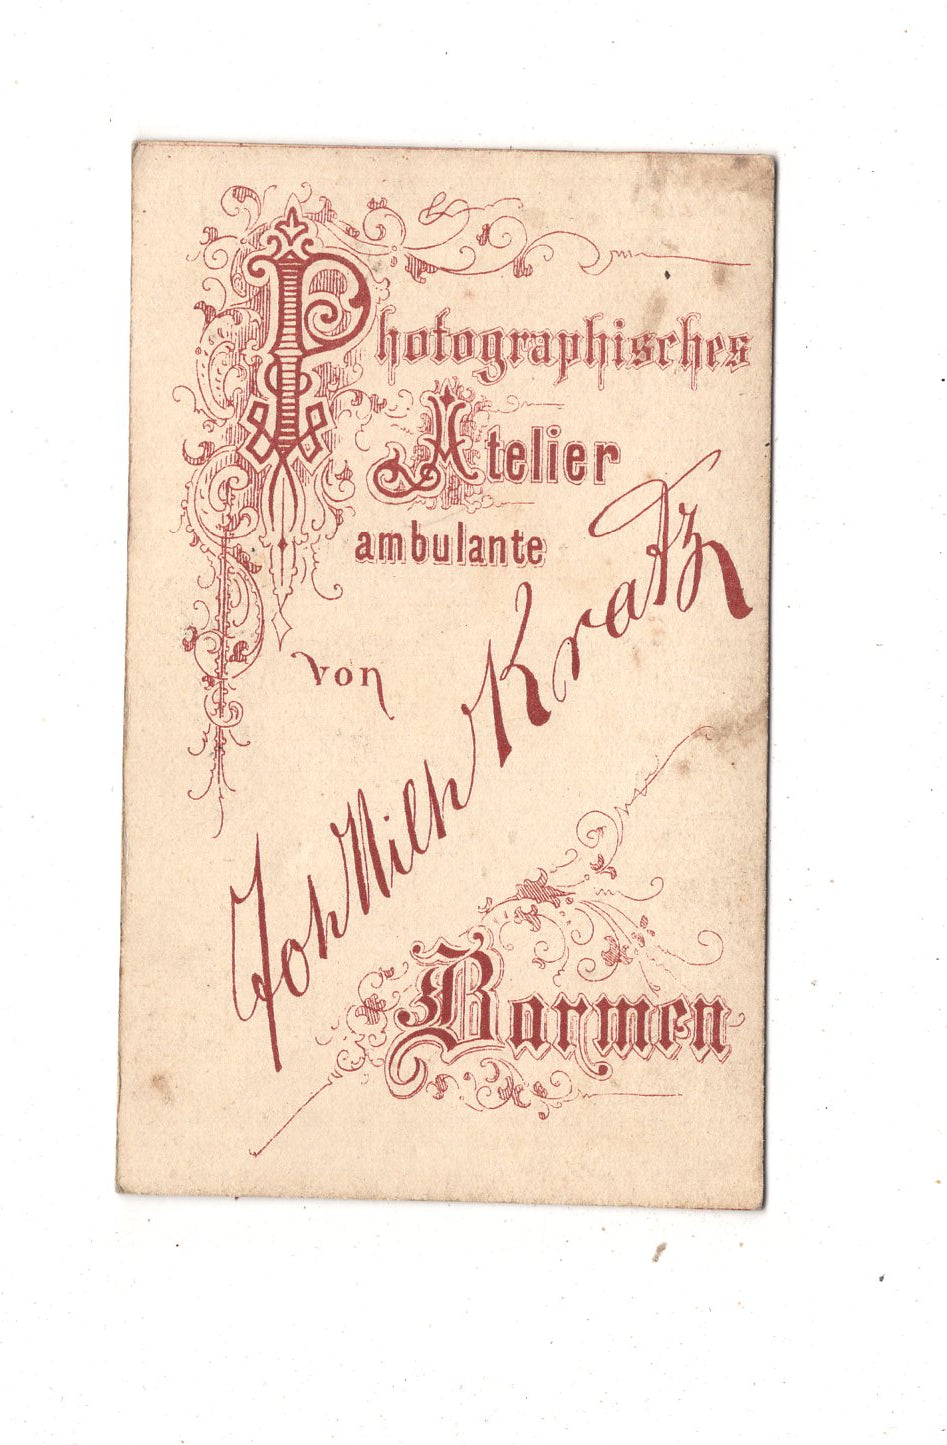 Photographisches
Atelier
ambulante
von
Joh Wilh Kratz
Barmen